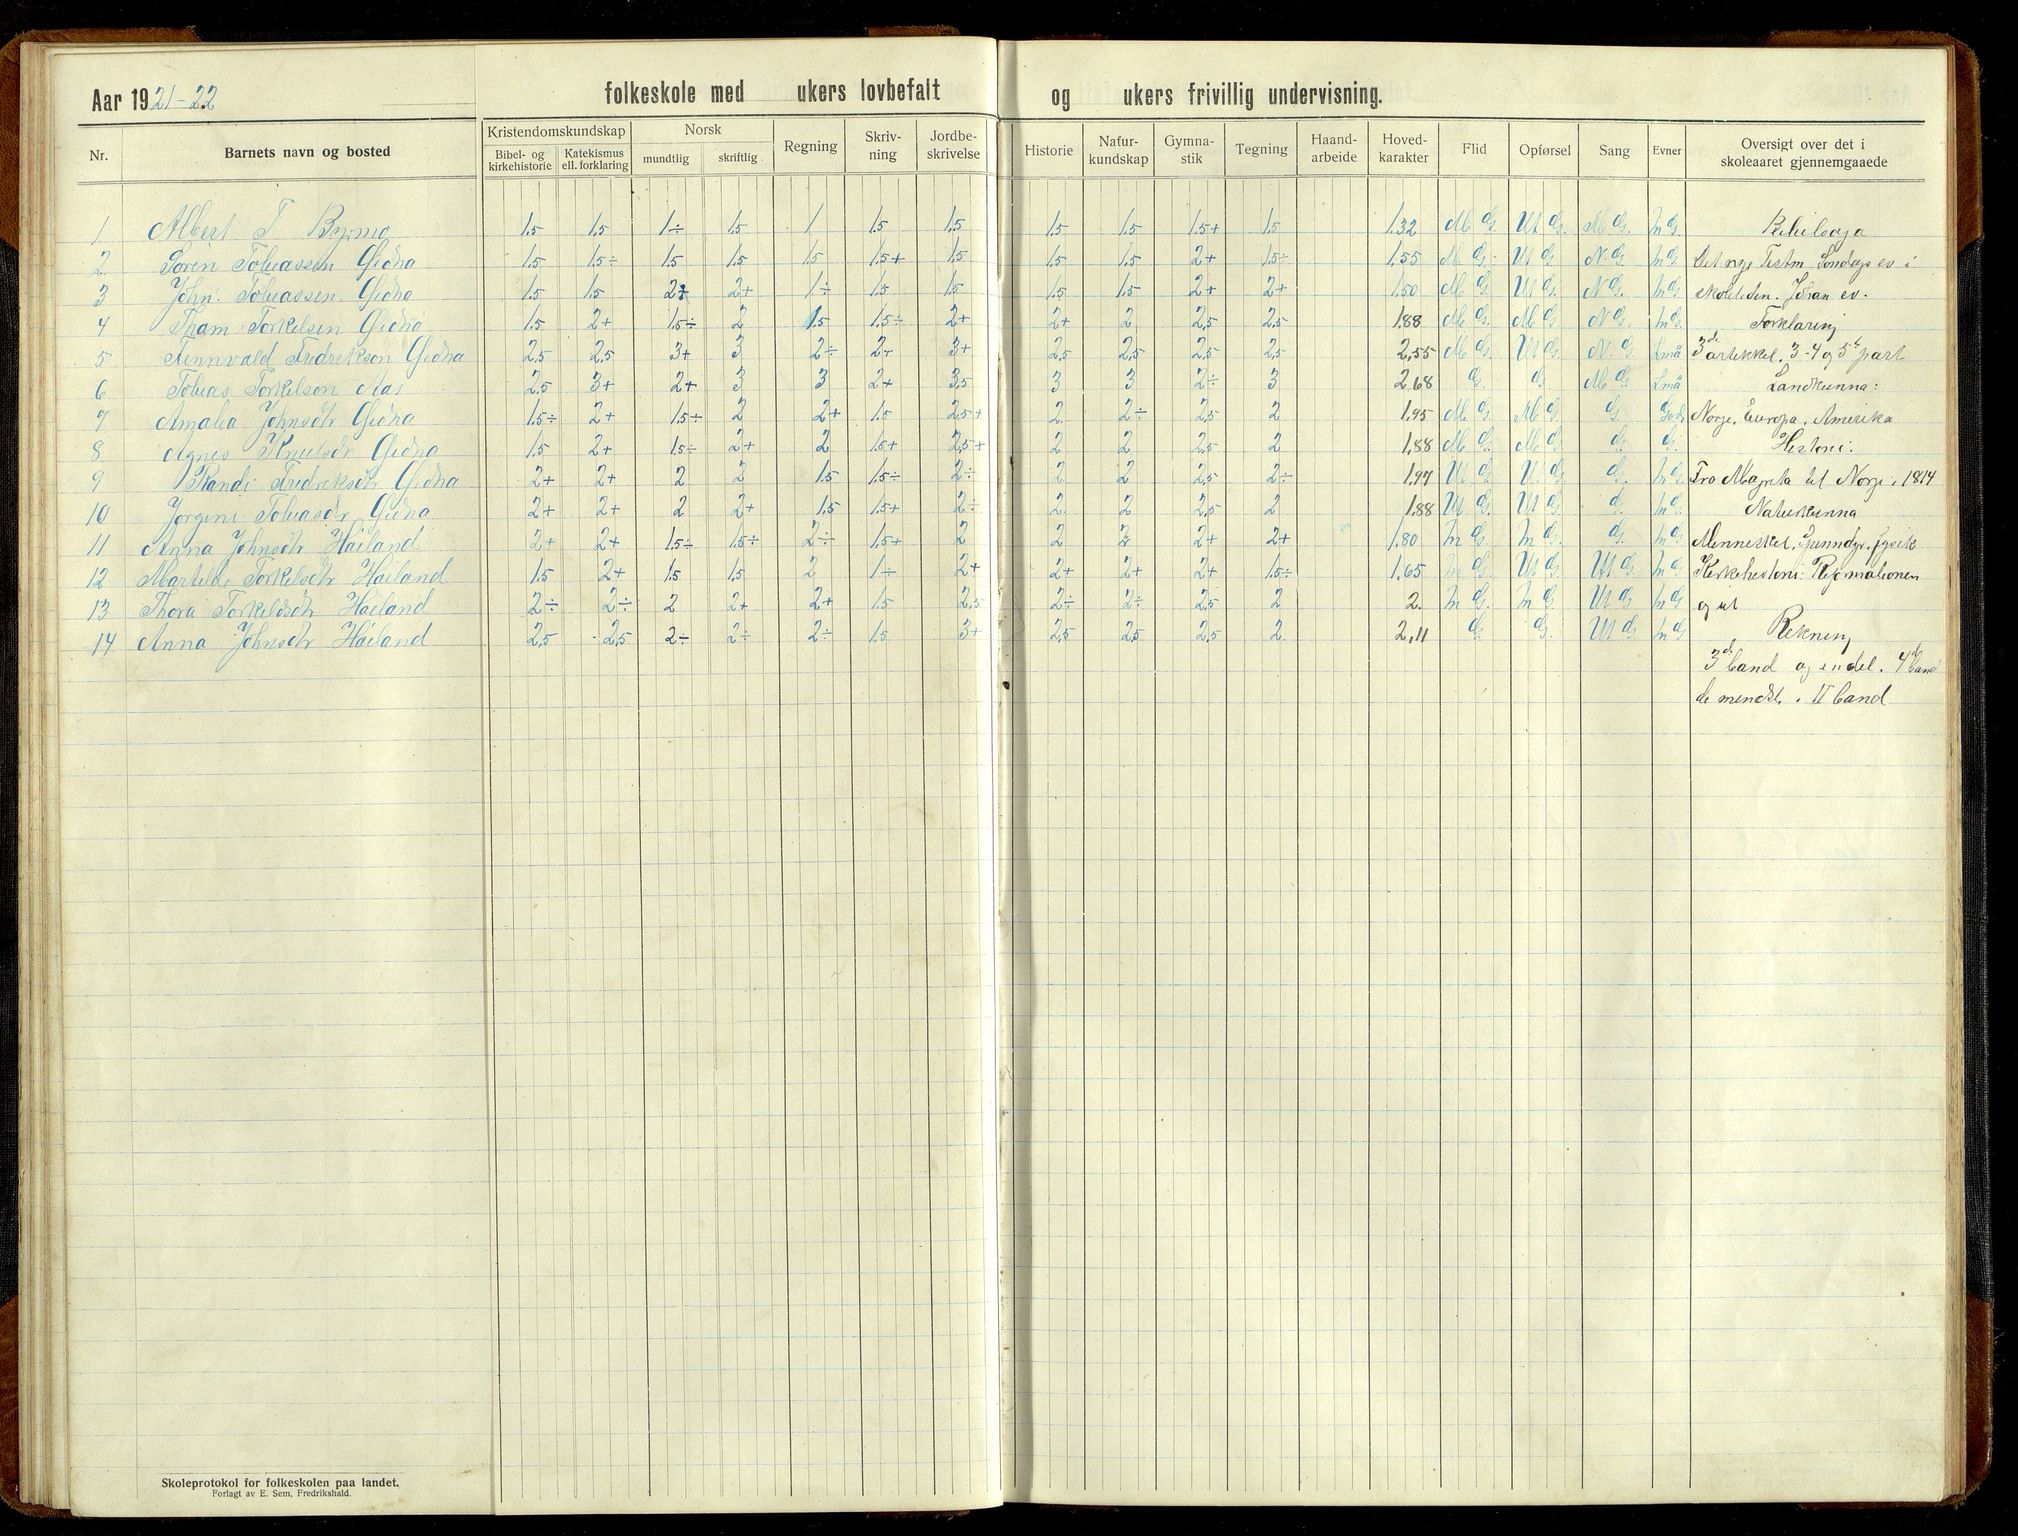 Aar 1921-22 folkeskole med ukers lovbefalt og ukers frivillig undervisning.
Nr. Barnets navn og bosted Kristendomskundskap Bibel- og kirkehistorie Katekismus ell. forklaring Norsk mundtlig skriftlig Regning Skriv-ning Jordbe-skrivelse Historie Natur-kundskap Gymna-stik Tegning Haand-arbeide Hoved-karakter Flid Opførsel Sang Evner Oversigt over det i skoleaaret gjennemgaaede
1 Albert T 1.5 1.5 1÷ 1.5 1 1.5 1.5 1.5 1.5 1.5+ 1.5 1.32 M G. Ut G. M G. M G. Bibelsoga
2. Søren Tobiassen Gidna 1.5 1.5÷ 1.5 1.5 1.5 1.5+ 1.5 1.5 1.5 2+ 1.5÷ 1.55 M G. Ut G. N. G. M G Det nye Testm. Sondags ev i
3 John. Tobiassen. Gidna 1.5 1.5 2+ 2+ 1÷ 1.5 1.5 1.5 1.5 2+ 2+ 1.50 M G. Ut G. N G. M G. skoletiden. Johan ev.
4 Tham Torkelsen Gidna 1.5 2+ 1.5÷ 2 1.5 1.5÷ 2+ 2+ 2 2.5 2.5 1.88 M G. M G. N G. M G. Forklaring
5 Tennvald Fredrikson Gidna 2.5 2.5 3+ 3 2÷ 2+ 3+ 2.5 2.5 2.5 2.5 2,55 M G. Ut G. N. G. Små 3d artikkel. 3-4 og 5t part
6 Tobias Torkelson Aas 2.5 3+ 2+ 3 3 2+ 3.5 3 3 2÷ 3 2,68 G. G M G. Små Landkunna:
7 Amalia Johnsdtr Gidna 1.5÷ 2+ 1.5÷ 2 2+ 1.5 2.5+ 2. 2÷ 2.5 2 1.95 M G. M G G. God, Norge, Europa, Amerika
8 Agnes Knutsdr Gidna 1.5 2+ 1.5÷ 2+ 2 1.5+ 2,5+ 2 2 2.5 2 1,88 M G. M G. G. G. Historie:
9 Randi Fredriksdtr Gidna 2+ 2+ 2 2 1.5 1.5÷ 2÷ 2 2 2.5 2÷ 1,97 Ut G Ut G. G. M G. Fra Magreta til Norge i 1814
10 Jorgine Tobiasdr Gidna 2+ 2+ 2 2+ 1.5 1.5+ 2÷ 2. 2 2.5 2 1.88 Ut G. Ut G G. M G. Naturkunna
11 Anna Johnsdtr Håiland 2+ 2+ 1.5÷ 1.5÷ 2÷ 1.5+ 2 2 2 2+ 2+ 1,80 M G. M G. G. M G. Mennesket, fysik
12 Martilde Torkelsdtr Håiland 1.5 2+ 1.5 1.5 2 1÷ 2+ 2+ 2+ 2+ 1.5÷ 1,65 M G. Ut G. Ut G. M G Kirkehistorie: Reformationen
13 Thora Torkeldsdtr Håiland 2÷ 2÷ 2 2+ 2+ 1.5 2,5 2÷ 2÷ 2.5 2 2. M G. M G. Ut G M G og ut
14. Anna Johnsdtr Håiland 2.5 2.5 2÷ 2÷ 2÷ 1.5 3+ 2.5 2.5 2.5 2. 2,11 G. G. Ut G. M G Rekning
3d band og endel. 4d band
de mindste. II band
Skoleprotokol for folkeskolen paa landet.
Forlagt av E. Sem, Fredrikshald.